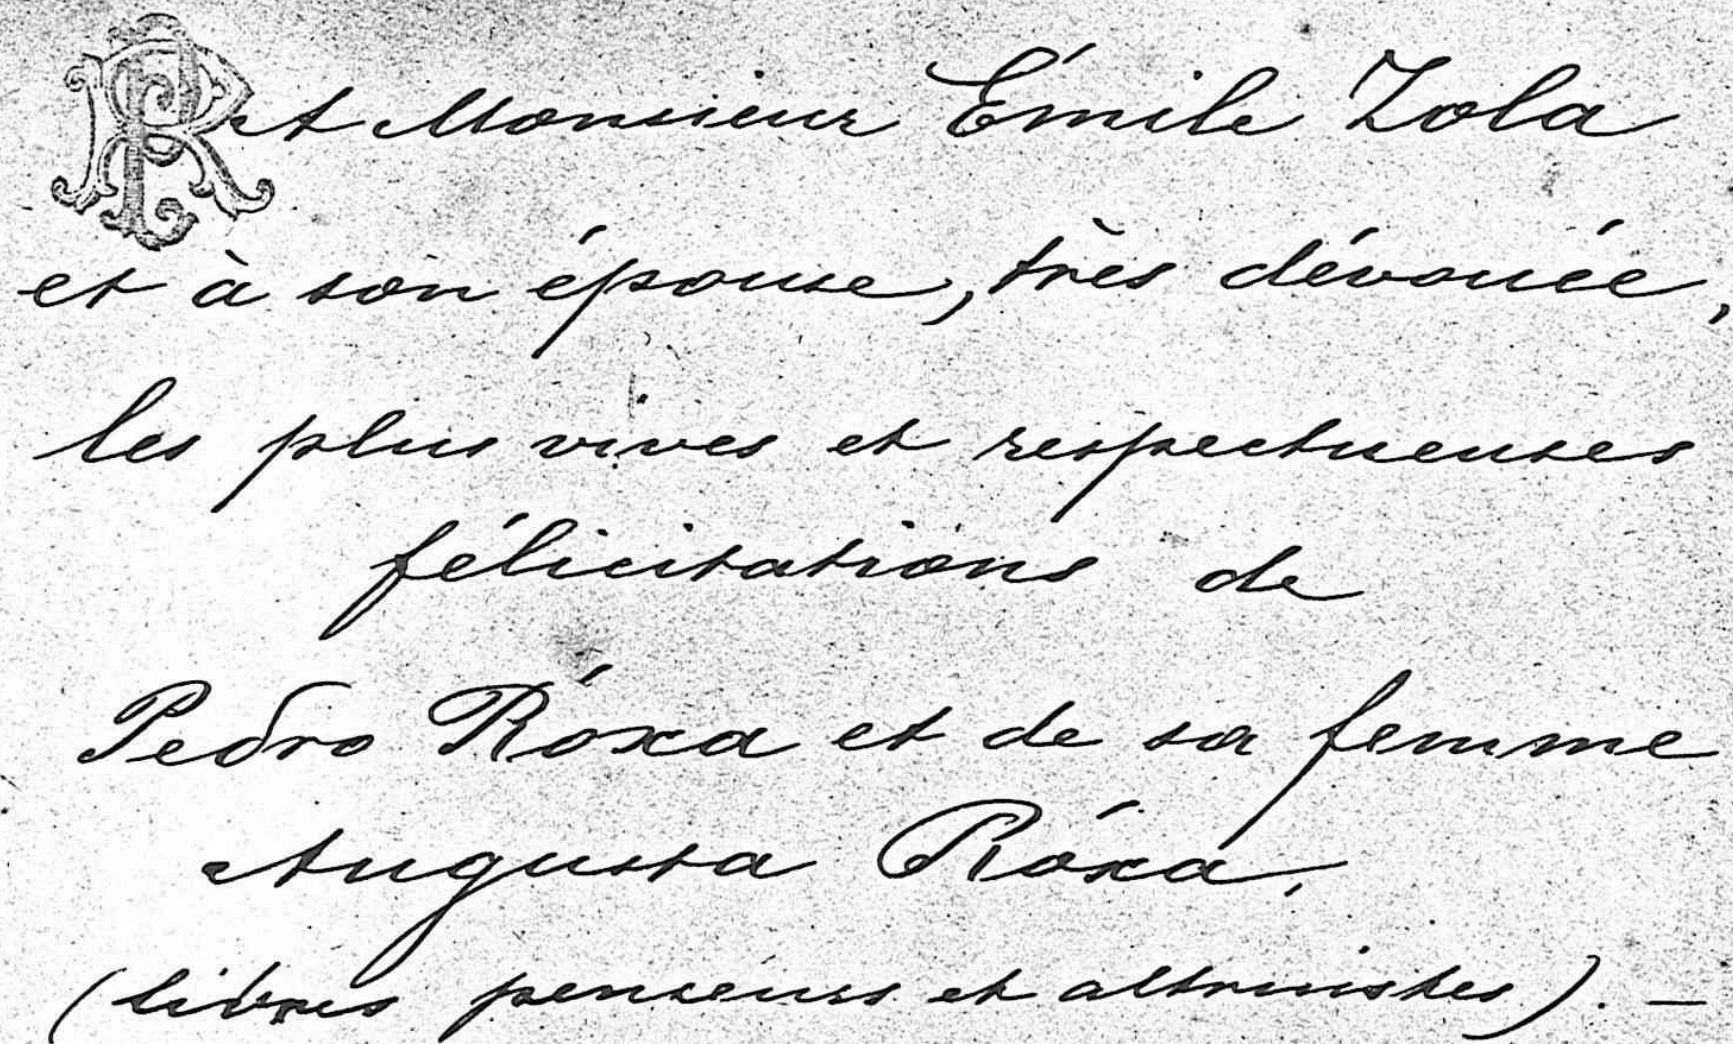 A Monsieur Émile Zola
et à son épouse, très dévouée,
les plus vives et respectueuses
félicitations de
Pedro Róxa et de sa femme
Augusta Róxa,
(libres penseurs et altruistes). —